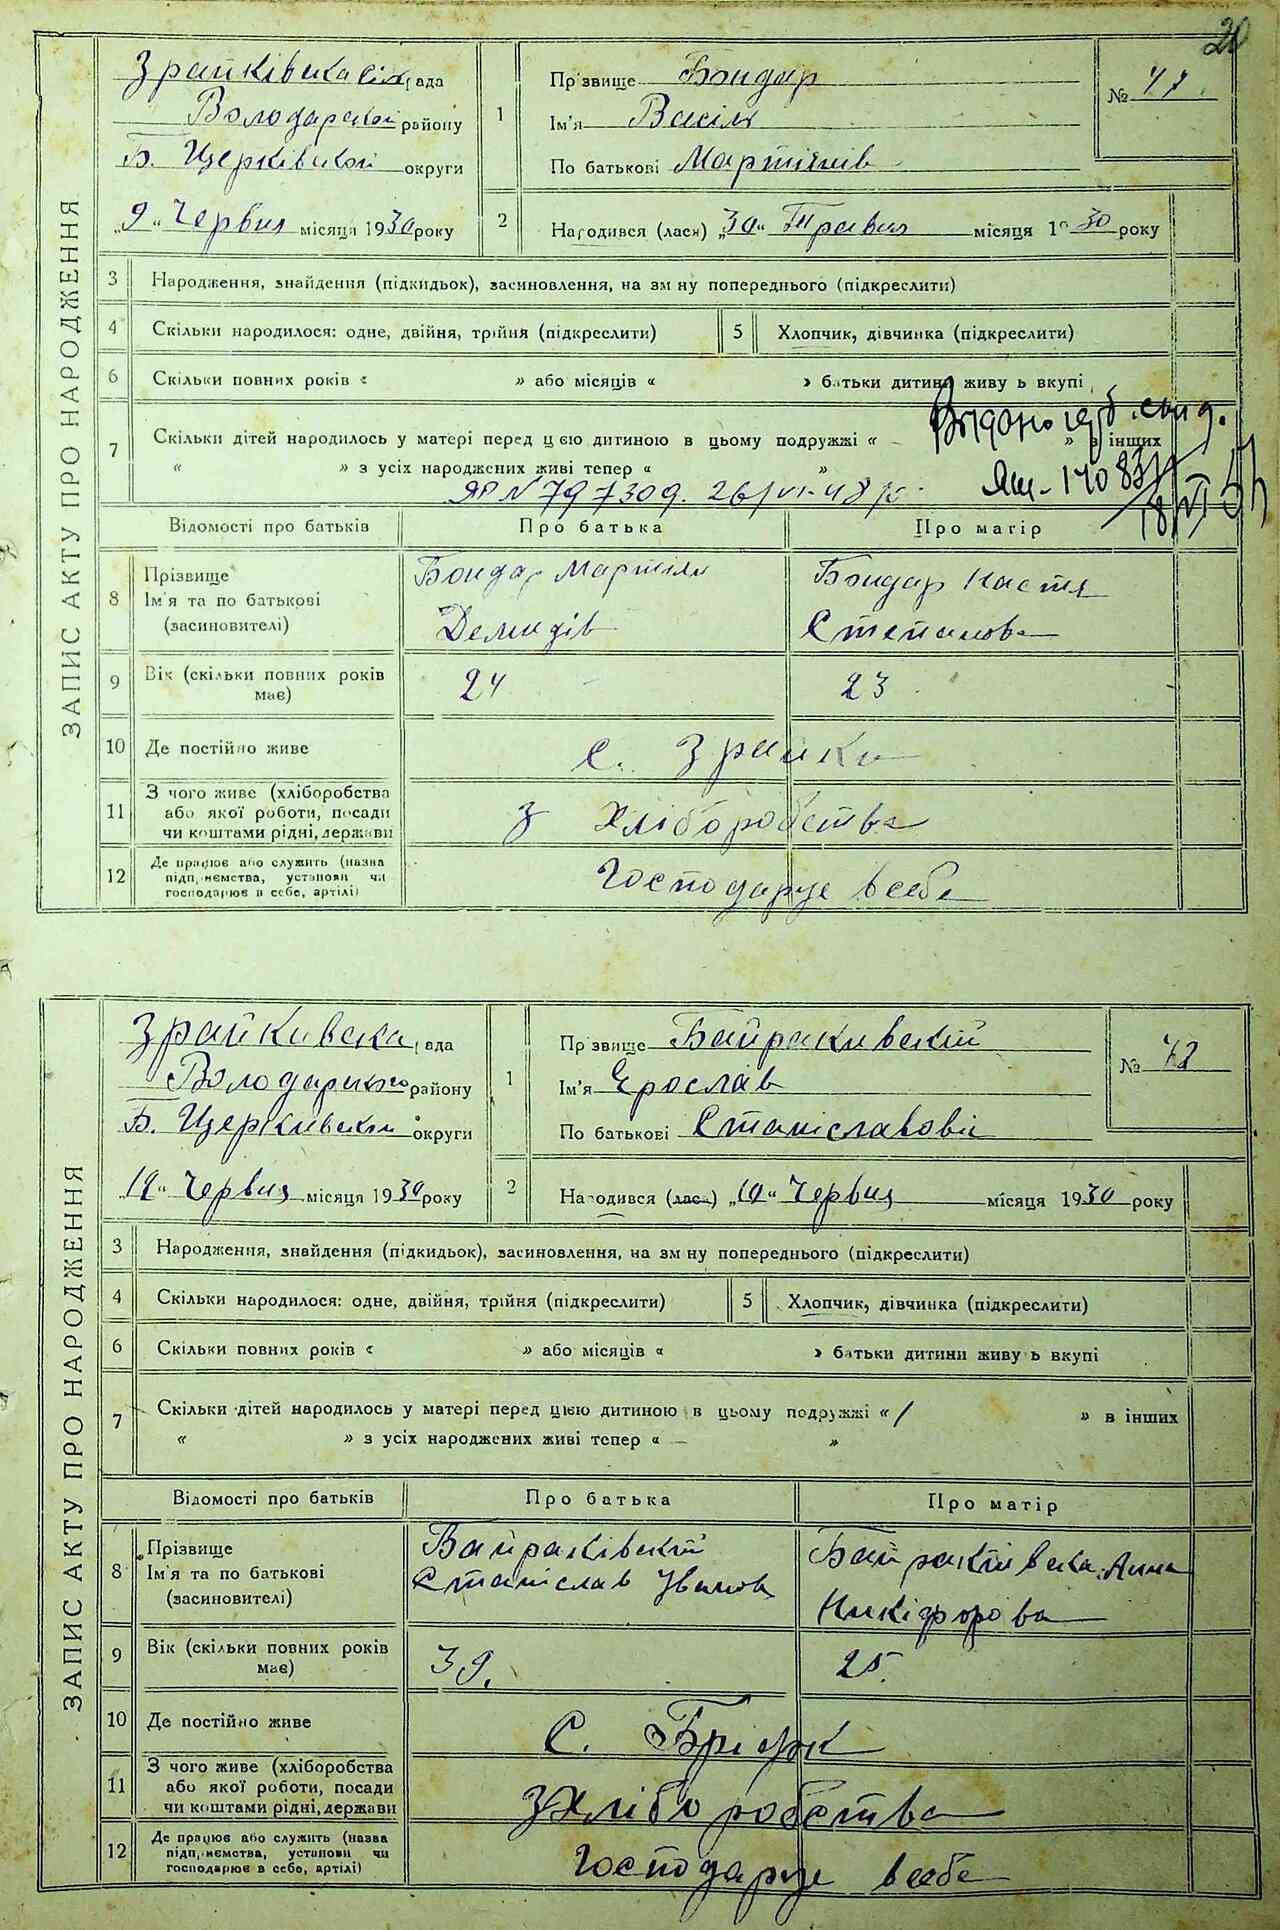 20
ЗАПИС АКТУ ПРО НАРОДЖЕННЯ
Зрайківська сільрада
Володарської району
Б. Церківської округи
„9“ Червня місяця 1930 року
1
Пр'звище Бондар
Ім'я Васіль
По батькові Мартинів
№ 47
2
Народився (лася) „30“ Травня місяця 1930 року
3 Народження, знайдення (підкидьок), засиновлення, на зм ну попереднього (підкреслити)
4 Скільки народилося: одне, двійня, трійня (підкреслити)
5 Хлопчик, дівчинка (підкреслити)
6 Скільки повних років « » або місяців « » батьки дитини живу ь вкупі
7 Скільки дітей народилось у матері перед цією дитиною в цьому подружжі « - » в інших
« » з усіх народжених живі тепер « »
Видано свід.
ЯР № 797309. 26/VI-48
18/VI 54
Відомості про батьків Про батька Про матір
8 Прізвище Ім'я та по батькові (засиновителі)
Бондар Мартин
Демидів
Бондар Настя
Степанова
9 Вік (скільки повних років має) 24 23
10 Де постійно живе с. Зрайки
11 З чого живе (хліборобства або якої роботи, посади чи коштами рідні, держави З хліборобства
12 Де працює або служить (назва підп, иємства, установи чи господарює в себе, артілі) Господарує в себе
ЗАПИС АКТУ ПРО НАРОДЖЕННЯ
Зрайкивска рада
Володарського району
Б. Церкивської округи
„12“ Червня місяця 1930 року
1
Пр'звище Байракивский
Ім'я Ярослав
По батькові Станіславовіч
№ 42
2
Народився (лася) „10“ Червня місяця 1930 року
3 Народження, знайдення (підкидьок), засиновлення, на зм ну попереднього (підкреслити)
4 Скільки народилося: одне, двійня, трійня (підкреслити)
5 Хлопчик, дівчинка (підкреслити)
6 Скільки повних років « » або місяців « » батьки дитини живу ь вкупі
7 Скільки дітей народилось у матері перед цією дитиною в цьому подружжі « / » в інших
« » з усіх народжених живі тепер « - »
Відомості про батьків Про батька Про матір
8 Прізвище Ім'я та по батькові (засиновителі)
Байраківский
Станіслав Іванов
Байраківска Анна
Никіфорова
9 Вік (скільки повних років має) 39. 25.
10 Де постійно живе С.
11 З чого живе (хліборобства або якої роботи, посади чи коштами рідні, держави З хліборобства
12 Де працює або служить (назва підп, иємства, установи чи господарює в себе, артілі) Господарує в себе